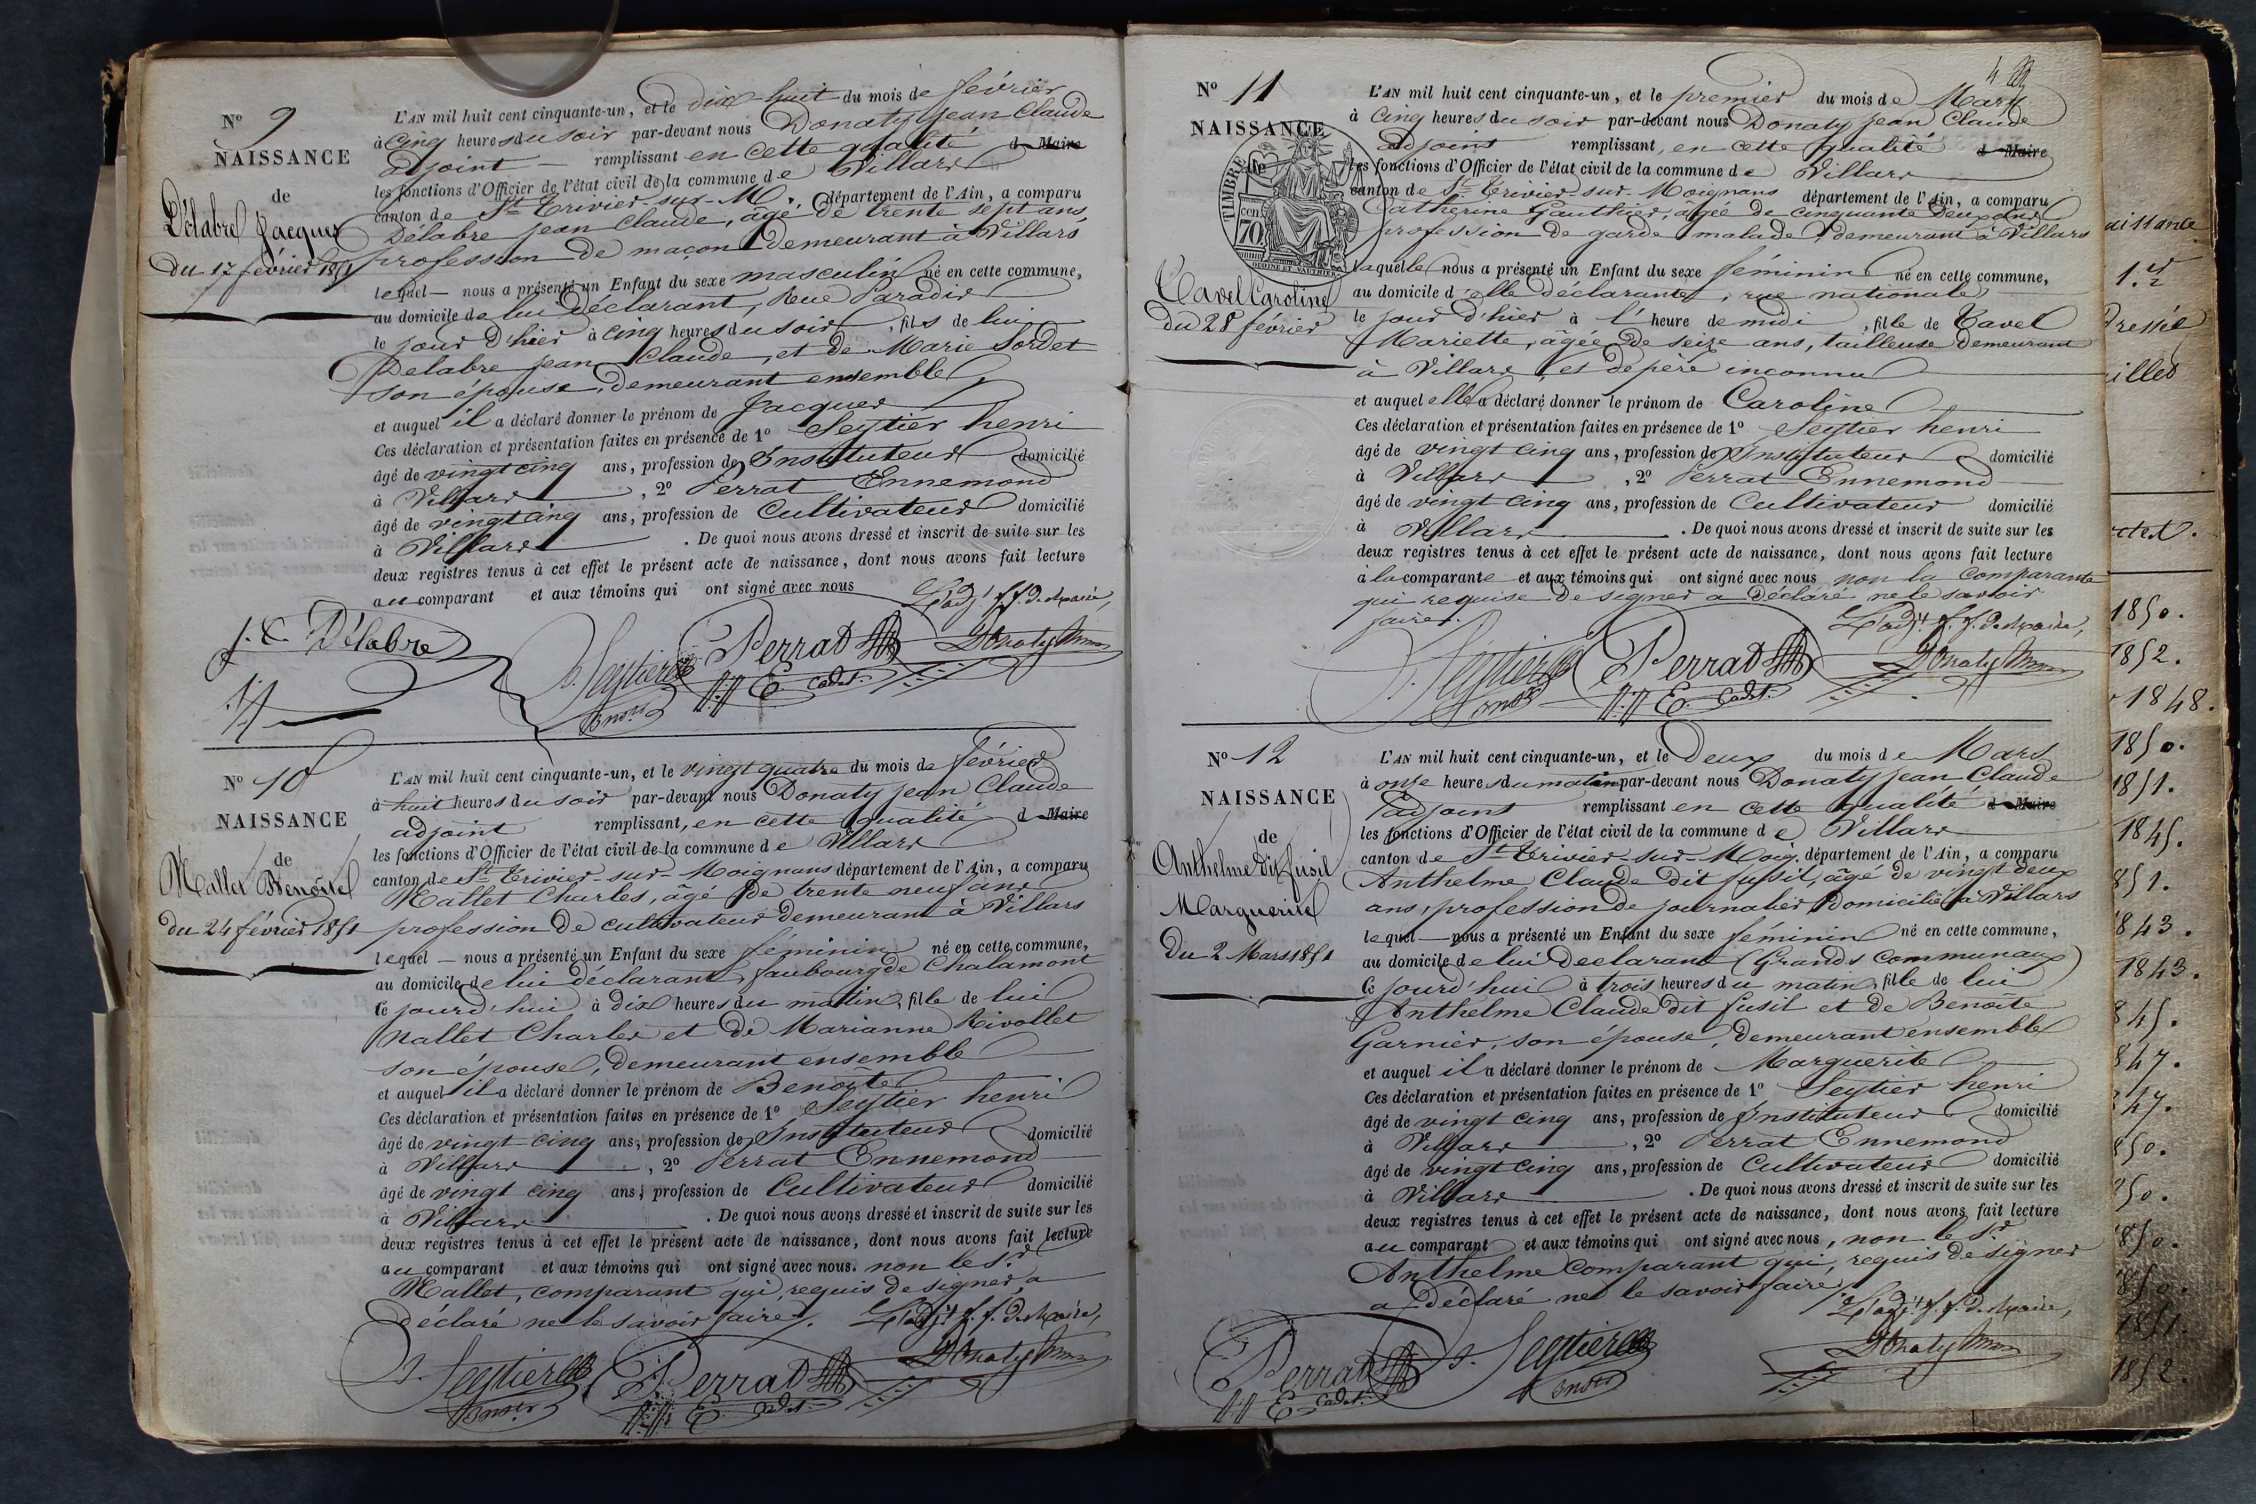 Nº 9
NAISSANCE
de
Délabre Jacques
du 17 février 1851
L'AN mil huit cent cinquante-un, et le dix-huit du mois de février
à cinq heures du soir par-devant nous Donaty Jean Claude
adjoint remplissant en cette qualité d Maire
les fonctions d'Officier de l'état civil de la commune de Villars
canton de St Trivier-sur-M., département de l'Ain, a comparu
Délabre Jean Claude, âgé de trente sept ans,
profession de maçon demeurant à Villars
lequel — nous a présenté un Enfant du sexe masculin né en cette commune,
au domicile de lui déclarant, Rue Paradis
le jour d'hier à cinq heures du soir, fils de lui
Delabre Jean Claude, et de Marie Sordet
son épouse, demeurant ensemble
et auquel il a déclaré donner le prénom de Jacques
Ces déclaration et présentation faites en présence de 1º Seytier henri
âgé de vingt cinq ans, profession de Instituteur domicilié
à Villars, 2º Perrat Ennemond
âgé de vingt cinq ans, profession de Cultivateur domicilié
à Villars. De quoi nous avons dressé et inscrit de suite sur les
deux registres tenus à cet effet le présent acte de naissance, dont nous avons fait lecture
au comparant et aux témoins qui ont signé avec nous
L'adjt f. f. de Maire,
J. C. Délabre Seytier Perrat Donaty
E. cadet.
Nº 10
NAISSANCE
de
Mallet Benoîte
du 24 février 1851
L'AN mil huit cent cinquante-un, et le vingt quatre du mois de février
à huit heures du soir par-devant nous Donaty Jean Claude
adjoint remplissant, en cette qualité d Maire
les fonctions d'Officier de l'état civil de la commune de Villars
canton de St Trivier-sur-Moignans département de l'Ain, a comparu
Mallet Charles, âgé de trente neuf ans,
profession de cultivateur demeurant à Villars
lequel — nous a présenté un Enfant du sexe féminin né en cette commune,
au domicile de lui déclarant, faubourg de Chalamont
ce jourd'hui à dix heures du matin, fille de lui
Mallet Charles et de Marianne Rivollet
son épouse, demeurant ensemble
et auquel il a déclaré donner le prénom de Benoîte
Ces déclaration et présentation faites en présence de 1º Seytier henri
âgé de vingt cinq ans, profession de Instituteur domicilié
à Villars, 2º Perrat Ennemond
âgé de vingt cinq ans, profession de Cultivateur domicilié
à Villars. De quoi nous avons dressé et inscrit de suite sur les
deux registres tenus à cet effet le présent acte de naissance, dont nous avons fait lecture
au comparant et aux témoins qui ont signé avec nous. non le Sr
Mallet, comparant qui, requis de signer, a
déclaré ne le savoir faire. L'adjt f. f. de Maire,
Seytier Perrat Donaty
E. cadet.
4
Nº 11
NAISSANCE
TIMBRE
cen
70
Tavel Caroline
du 28 février
L'AN mil huit cent cinquante-un, et le premier du mois de Mars
à cinq heures du soir par-devant nous Donaty Jean Claude
adjoint remplissant, en cette qualité d Maire
les fonctions d'Officier de l'état civil de la commune de Villars
canton de St Trivier-sur-Moignans département de l'Ain, a comparu
Catherine Gauthier, âgée de cinquante deux ans
profession de garde malade demeurant à Villars
laquelle nous a présenté un Enfant du sexe féminin né en cette commune,
au domicile d'elle déclarante, rue nationale
le jour d'hier à l'heure de midi, fille de Tavel
Mariette, âgée de seize ans, tailleuse demeurant
à Villars, et de père inconnu
et auquel elle a déclaré donner le prénom de Caroline
Ces déclaration et présentation faites en présence de 1º Seytier henri
âgé de vingt cinq ans, profession de Instituteur domicilié
à Villars, 2º Perrat Ennemond
âgé de vingt cinq ans, profession de Cultivateur domicilié
à Villars. De quoi nous avons dressé et inscrit de suite sur les
deux registres tenus à cet effet le présent acte de naissance, dont nous avons fait lecture
à la comparante et aux témoins qui ont signé avec nous non la comparante
qui requise de signer a déclaré ne le savoir
faire. L'adjt f. f. de Maire,
Seytier Perrat Donaty
E. cadet.
Nº 12
NAISSANCE
de
Anthelme dit fusil
Marguerite
Du 2 Mars 1851
L'AN mil huit cent cinquante-un, et le Deux du mois de Mars
à onze heures du matin par-devant nous Donaty Jean Claude
l'adjoint remplissant en cette qualité d Maire
les fonctions d'Officier de l'état civil de la commune de Villars
canton de St Trivier-sur-Moig. département de l'Ain, a comparu
Anthelme Claude dit fusil, âgé de vingt deux
ans, profession de journalier domicilié à Villars
lequel — nous a présenté un Enfant du sexe féminin né en cette commune,
au domicile de lui Déclarant (Grands Communaux)
ce jourd'hui à trois heures du matin, fille de lui
Anthelme Claude dit fusil et de Benoîte
Garnier, son épouse, demeurant ensemble
et auquel il a déclaré donner le prénom de Marguerite
Ces déclaration et présentation faites en présence de 1º Seytier henri
âgé de vingt cinq ans, profession de Instituteur domicilié
à Villars, 2º Perrat Ennemond
âgé de vingt cinq ans, profession de Cultivateur domicilié
à Villars. De quoi nous avons dressé et inscrit de suite sur les
deux registres tenus à cet effet le présent acte de naissance, dont nous avons fait lecture
au comparant et aux témoins qui ont signé avec nous, non le Sr
Anthelme comparant qui, requis de signer
a déclaré ne le savoir faire. L'adjt f. f. de Maire,
Perrat Seytier Donaty
E. cadet.
aissance
1er
dressée
illes
1850.
1852.
1848.
1850.
1851.
1845.
851.
843.
1843.
845.
847.
47.
850.
50.
850.
1850.
1851.
1852.